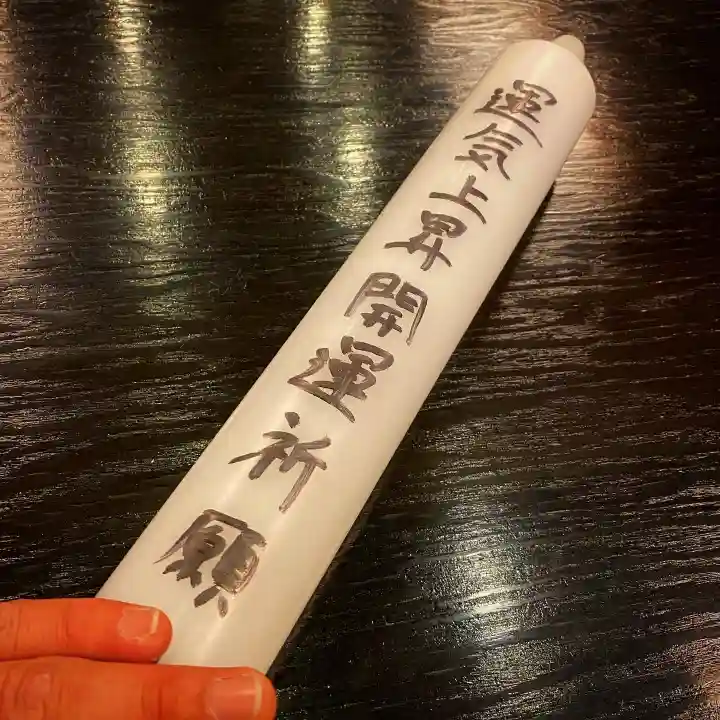 運気上昇開運祈願